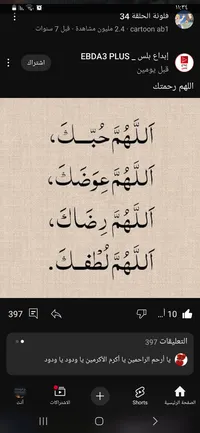 ١١:٣٤
فلونة الحلقة 34
cartoon ab1 · 2.4 مليون مشاهدة · قبل 7 سنوات
إبداع بلس _ EBDA3 PLUS
قبل يومين
اشتراك
اللهم رحمتك
اَللَّهُمَّ حُبَّـكَ،
اَللَّهُمَّ عِوَضَكَ،
اَللَّهُمَّ رِضَاكَ،
اَللَّهُمَّ لُطْفَـكَ.
10 آ...
397
التعليقات 397
يا أرحم الراحمين يا أكرم الأكرمين يا ودود يا ودود
الصفحة الرئيسية
Shorts
الاشتراكات
أنت